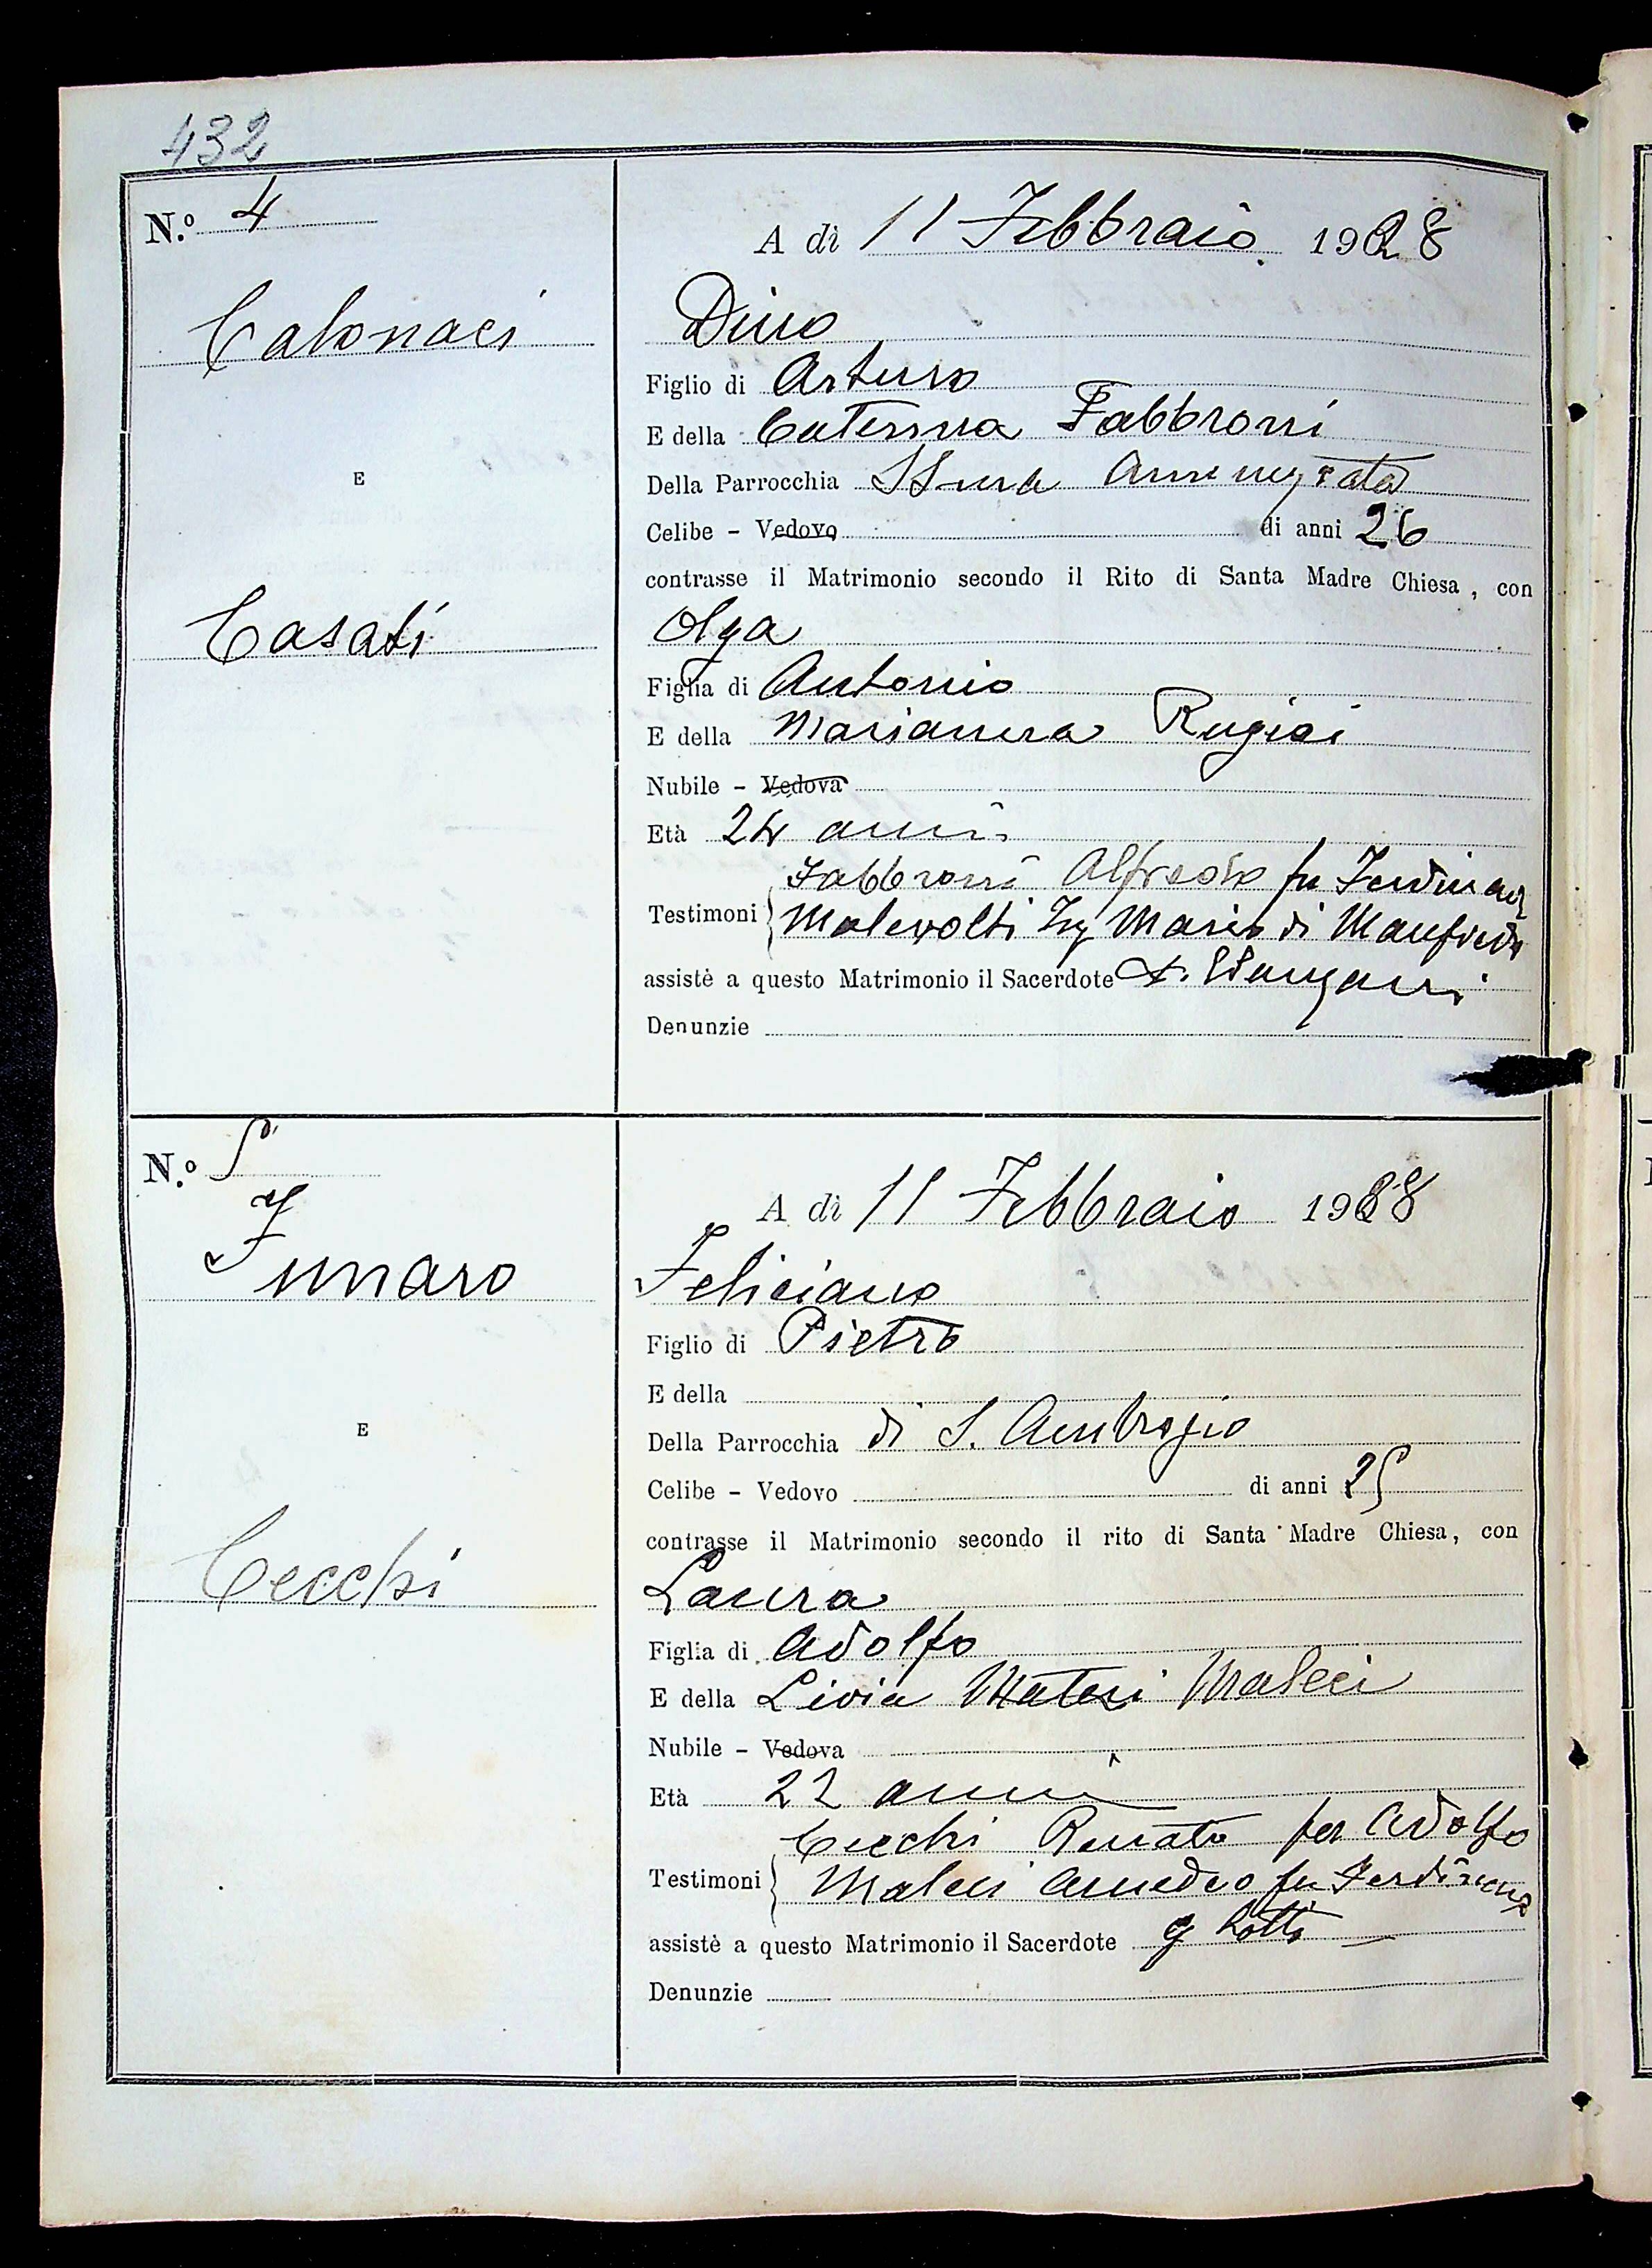 432
N.o 4
A dì 11 Febbraio 1928
Calonaci
Dino
Figlio di Arturo
E della Caterina Fabbroni
E
Della Parrocchia SS.ma Annunziata
Celibe - Vedovo di anni 26
contrasse il Matrimonio secondo il Rito di Santa Madre Chiesa, con
Casati
Olga
Figlia di Antonio
E della Marianna
Nubile - Vedova
Età 24 anni
Fabbroni Alfredo fu Ferdinando
Testimoni Malevolti Ing Mario di Manfredo
assistè a questo Matrimonio il Sacerdote
Denunzie
N.o 5
A dì 11 Febbraio 1928
Funaro
Feliciano
Figlio di Pietro
E della
E
Della Parrocchia di S. Ambrogio
Celibe - Vedovo di anni 25
contrasse il Matrimonio secondo il rito di Santa Madre Chiesa, con
Cecchi
Laura
Figlia di Adolfo
E della Livia Malesi Maleci
Nubile - Vedova
Età 22 anni
Cecchi Renato Adolfo
Testimoni Maleci Amedeo fu Ferdinando
assistè a questo Matrimonio il Sacerdote G Lotti
Denunzie